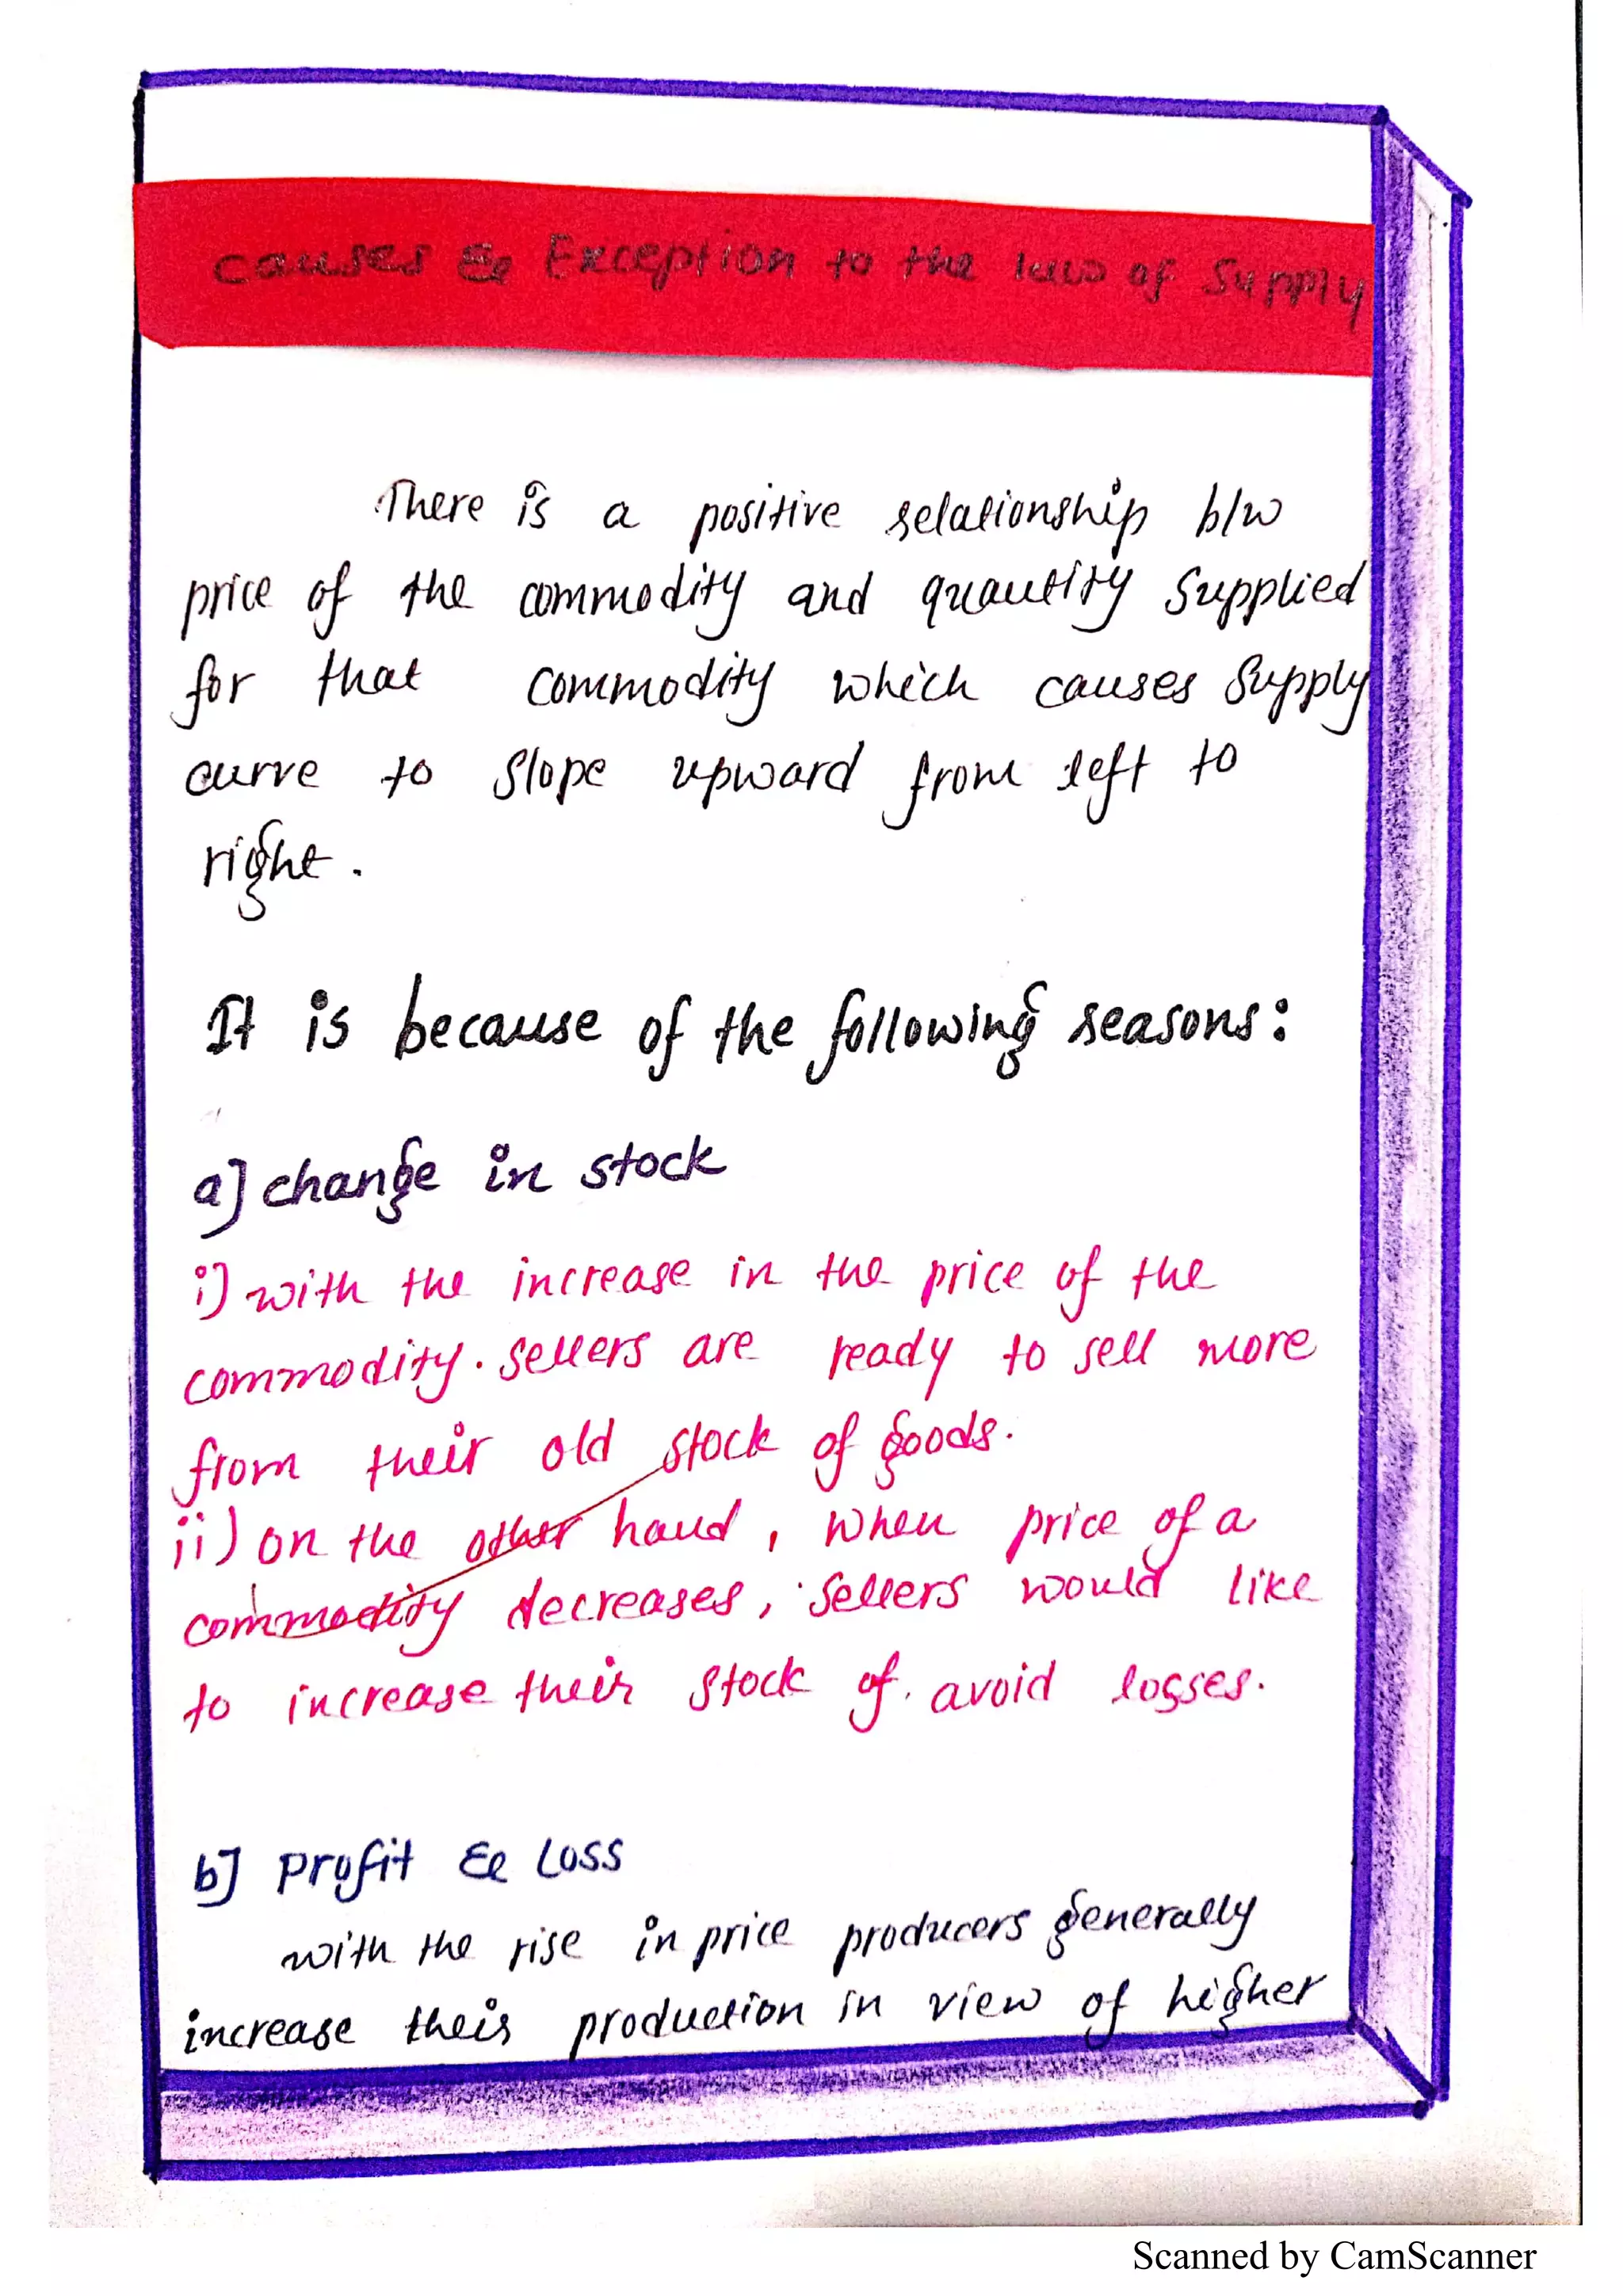 Causes & Exception to the law of Supply
There is a positive relationship b/w
price of the commodity and quantity Supplied
for that commodity which causes Supply
curve to slope upward from left to
right.
It is because of the following reasons:
a] change in stock
i) with the increase in the price of the
commodity. Sellers are ready to sell more
from their old stock of goods.
ii) on the other hand, when price of a
commodity decreases, sellers would like
to increase their stock of avoid losses.
b] Profit & Loss
with the rise in price producers generally
increase their production in view of higher
Scanned by CamScanner